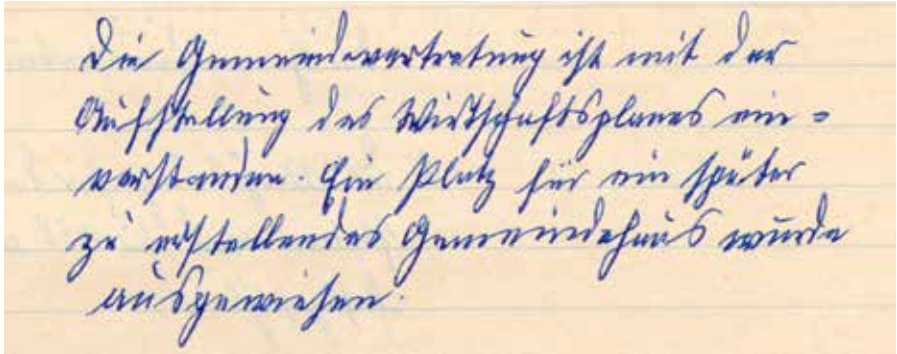 Die Gemeindevertretung ist mit der
Aufstellung des Wirtschaftsplanes ein=
verstanden. Ein Platz für ein später
zu erstellendes Gemeindehaus wurde
ausgewiesen.